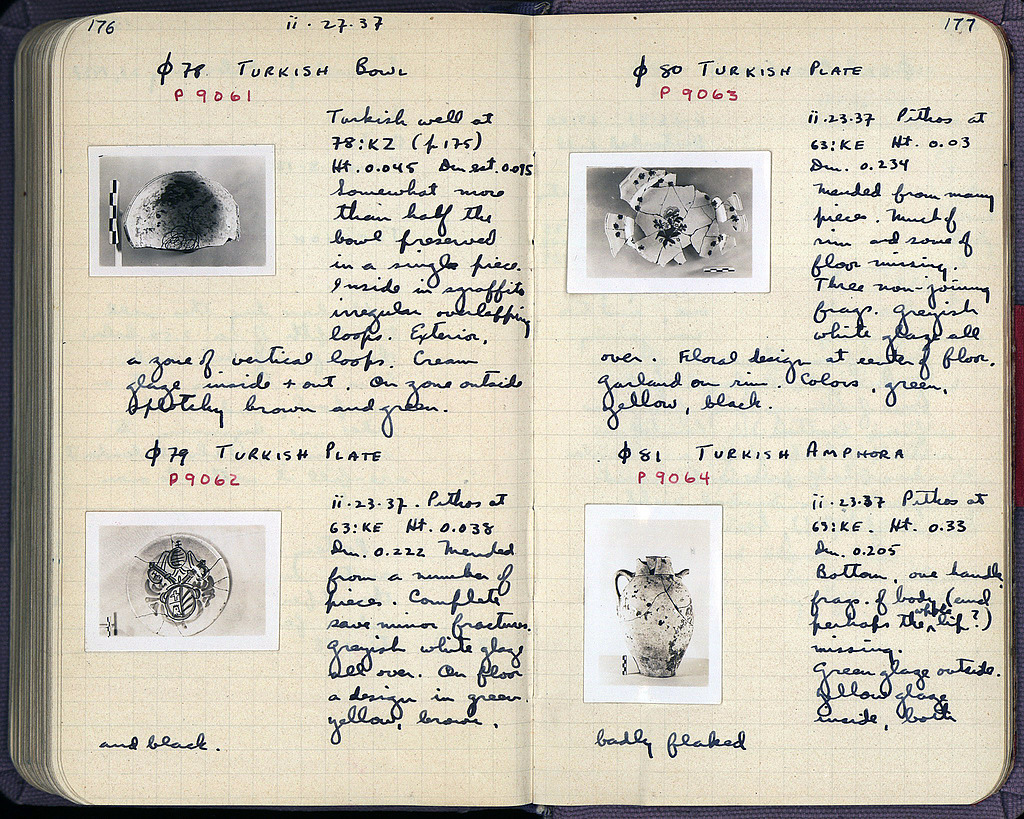 176
ii · 27 · 37
φ 78 TURKISH BOWL
P 9061
Turkish well at
78:KZ (p 175)
Ht. 0.045 Dm est. 0.095
Somewhat more
than half the
bowl preserved
in a single piece.
Inside in sgraffito
irregular overlapping
loops. Exterior,
a zone of vertical loops. Cream
glaze inside + out. On zone outside
splotchy brown and green.
φ 79 TURKISH PLATE
P 9062
ii·23·37. Pithos at
63:KE Ht. 0.038
Dm. 0.222 Mended
from a number of
pieces. Complete
save minor fractures.
Greyish white glaze
all over. On floor
a design in green
yellow, brown,
and black.
177
φ 80 TURKISH PLATE
P 9063
ii·23·37 Pithos at
63:KE Ht. 0.03
Dm. 0.234
Mended from many
pieces. Much of
rim and some of
floor missing.
Three non-joining
frags. Greyish
white glaze all
over. Floral design at center of floor.
Garland on rim. Colors, green,
yellow, black.
φ 81 TURKISH AMPHORA
P 9064
ii·23·37 Pithos at
63:KE. Ht. 0.33
Dm. 0.205
Bottom, one handle
frags. of body (and
perhaps the whole lip?)
missing.
Green glaze outside.
Yellow glaze
inside, both
badly flaked